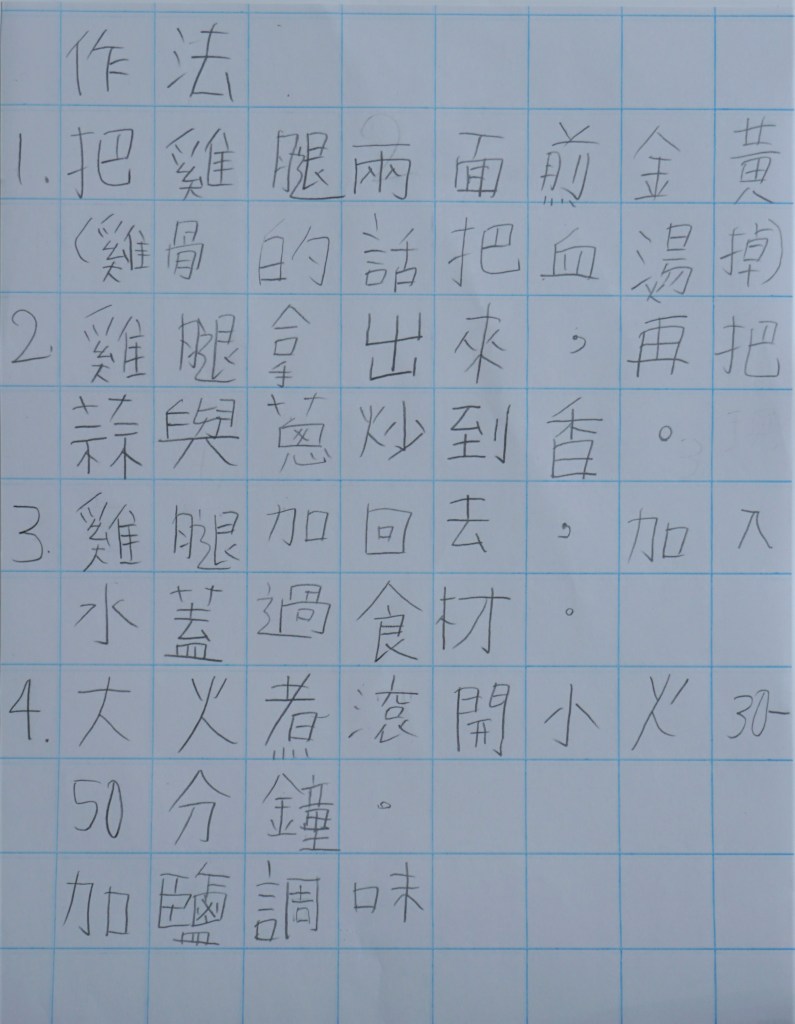 作法
1. 把雞腿兩面煎金黃
(雞骨的話把血燙掉)
2. 雞腿拿出來,再把
蒜與蔥炒到香。
3. 雞腿加回去,加入
水蓋過食材。
4. 大火煮滾開小火30-
50分鐘。
加鹽調味